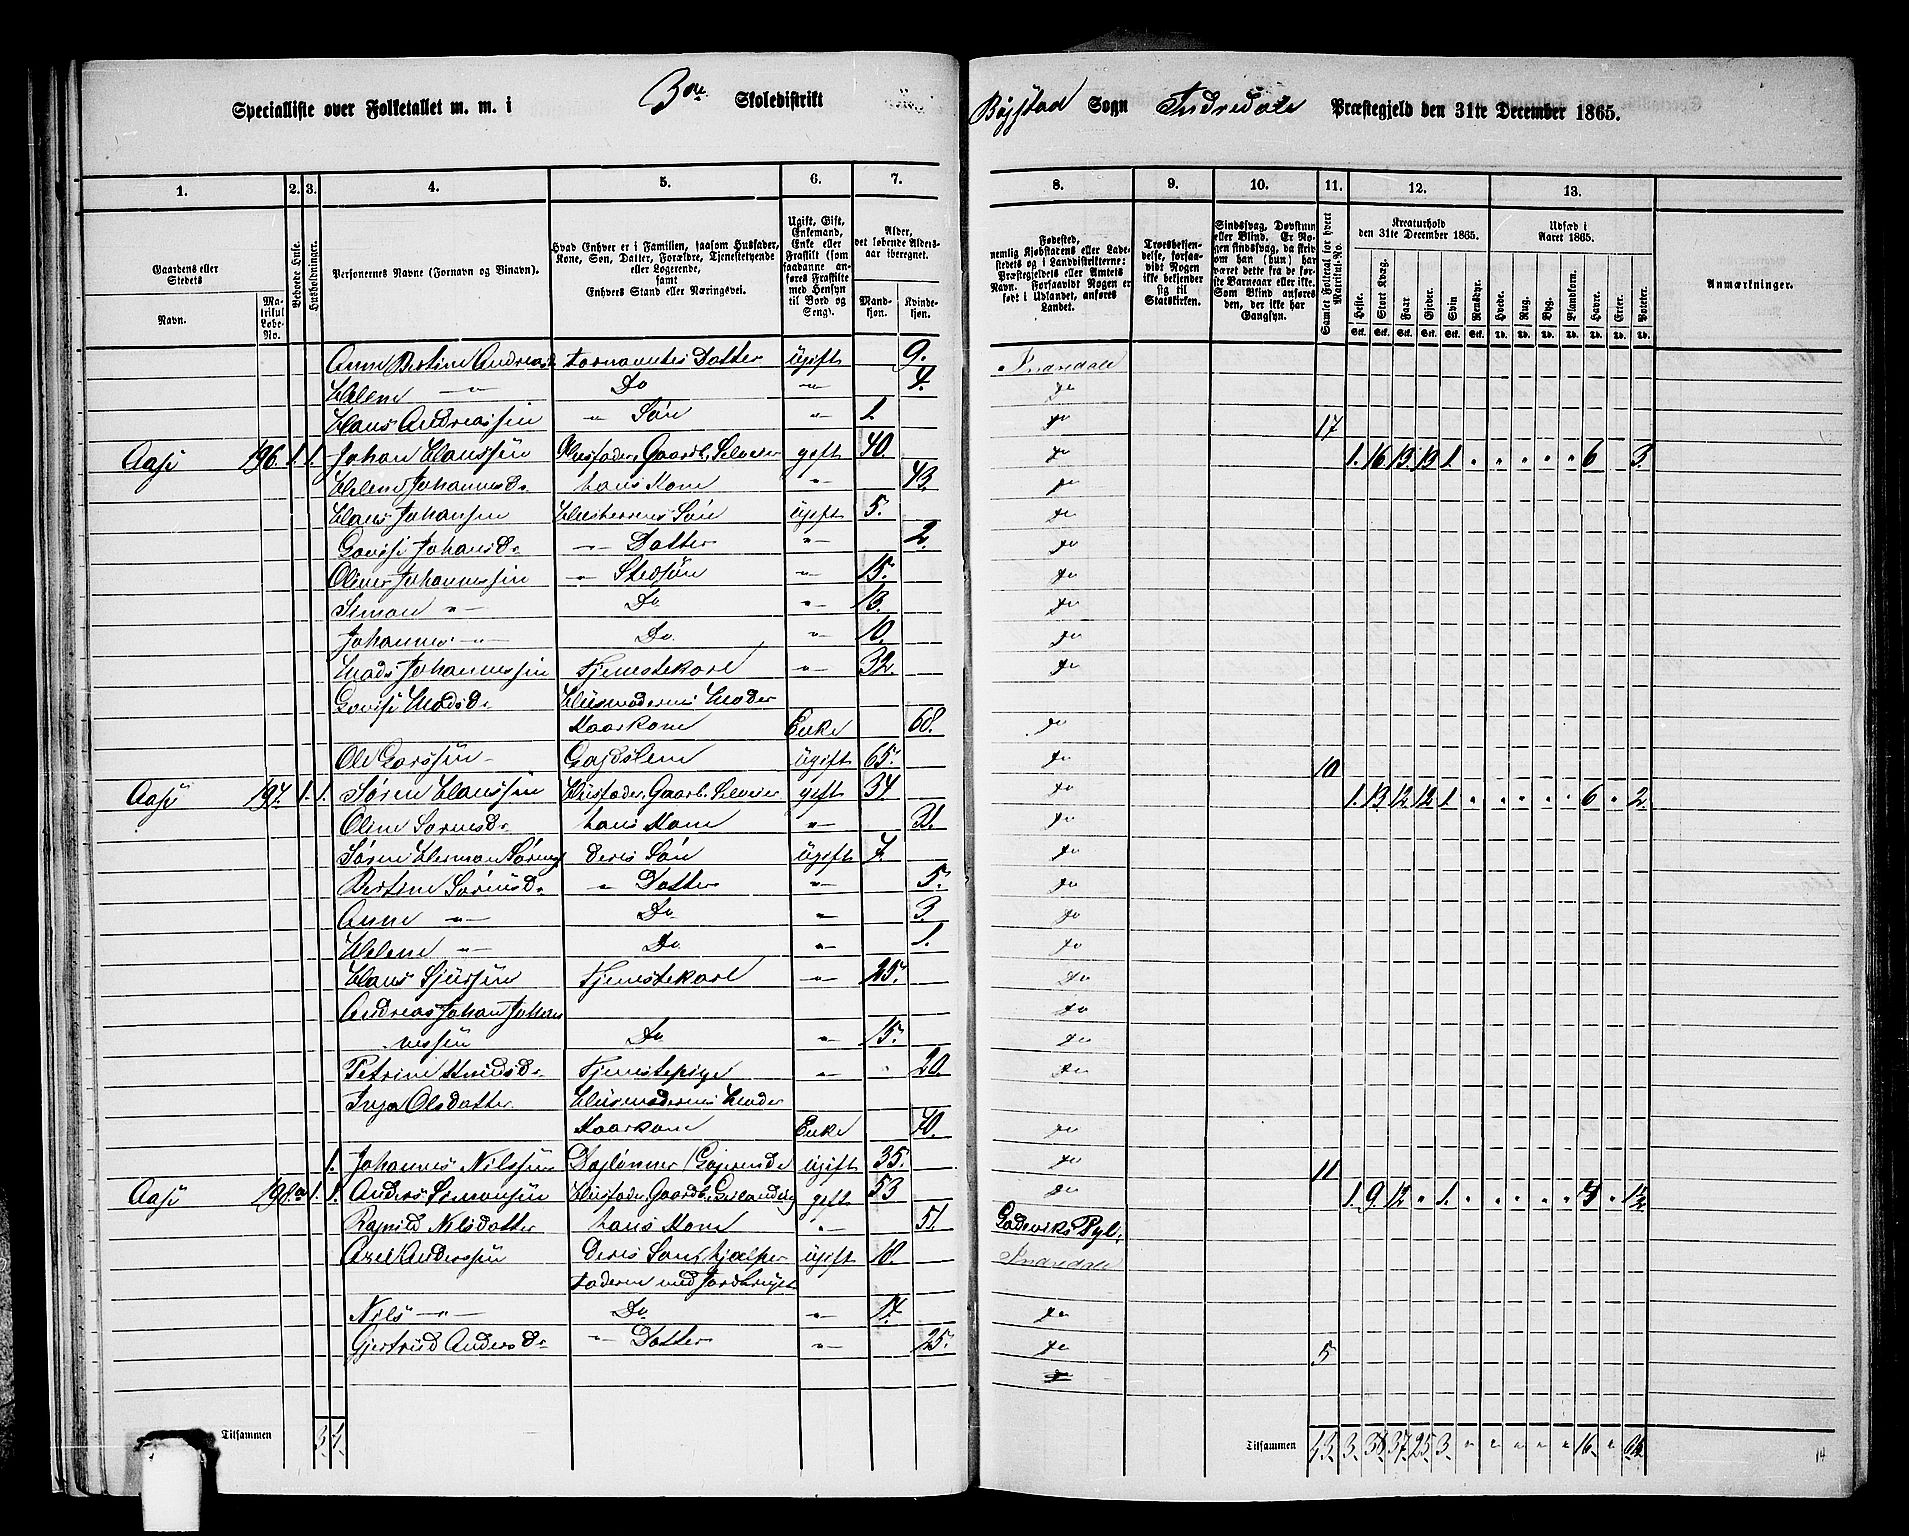 Specialliste over Folketallet m. m. i 3die Skoledistrikt
Bygstad Sogn Indredale Præstegjeld den 31te December 1865.
1. 2. 3. 4. 5. 6. 7. 8. 9. 10. 11. 12. 13.
Gaardens eller Stedets Navn.
Matrikul Løbe-No.
Beboede Huse.
Husholdninger.
Personernes Navne (Fornavn og Tilnavn).
Hvad Enhver er i Familien, saasom Husfader, Kone, Søn, Datter, Forældre, Tjenestetyende eller Logerende, samt Enhvers Stand eller Næringsvei.
Ugift, Gift, Enkemand, Enke eller Fraskilt (som saadanne anføres Fraskilte med Hensyn til Bord og Seng).
Alder, det løbende Aldersaar iberegnet.
Mandkjøn. Kvindekjøn.
Fødested, nemlig Kjøbstadens eller Ladestedets og i Landdistrikterne: Præstegjeldets eller Amtets Navn. Forsaavidt Nogen er født i Udlandet, anføres Landet.
Troesbekjendelse, forsaavidt Nogen ikke bekjender sig til Statskirken.
Sindssvag, Døvstum eller Blind. Er Nogen sindssvag, da skrives om han (hun) har været dette fra de første Barneaar eller ikke. Som Blind anføres den, der ikke har Gangsyn.
Samlet Folketal for hvert Matrikul-No.
Kreaturhold den 31te December 1865.
Heste. Stort Kvæg. Faar. Gjeder. Svin. Rensdyr.
Udsæd i Aaret 1865.
Hvede. Rug. Byg. Blandkorn. Havre. Erter. Poteter.
Anmærkninger.
Anne Bertine Andreasd. fornævntes Datter ugift 9. Indredale
Helene " Do " 4. do
Hans Andreassen " Søn " 1. do 17
Aase 196. 1. 1. Johan Hanssen Husfader, Gaardb. Selveier gift 40. do 1. 16 13 13 1. 6 3.
Helene Johannesd. hans Kone " 43. do
Hans Johansen Husherrens Søn ugift 5. do
Johansd. " Datter " 2. do
Oliver Johannessen " Stedsøn " 15. do
Simon " Do " 13. do
Johannes " Do. " 10. do
Mads Johannessen Tjenestekarl " 32. do
Madsd. Husmoderens Moder
Kaarkone Enke 68. do
Ole Larssen Gaardslem ugift 65. do 10
Aase 197. 1. 1. Søren Hanssen Husfader, Gaardb. Selveier gift 34 do 1. 13 12 12 1. 6 2.
Oline Sørensd. hans Kone " 31. do
Søren Herman Sørens. deres Søn ugift 7. do
Bertine Sørensd. " Datter " 5. do
Anne " Do " 3. do
Helene " Do. " 1. do
Hans Sjursen Tjenestekarl " 25. do
Andreas Johan Johan- do
nessen Do " 15. do
Petrine Knudsd. Tjenestepige " 20. do
Inga Olsdatter. Husmoderens Moder
Kaarkone Enke 70. do
1. Johannes Nilssen Daglønner ugift 35. do 11
Aase 198.a 1. 1. Anders Simonsen Husfader, Gaardb. gift 53 do 1. 9. 12 " 1. 4 1½
Ragnild Nilsdatter hans Kone " 51. Ladeviks Pgl.
Axel Anderssen Deres Søn, hjælper ugift 18. Indredale
Faderen med Jordbruget
Nils " Do " 14. do
Gjertrud Andersd. " Datter " 25. do 5
Tilsammen 3. 4.
Tilsammen 43. 3. 38. 37. 25. 3. 16. 6½
14